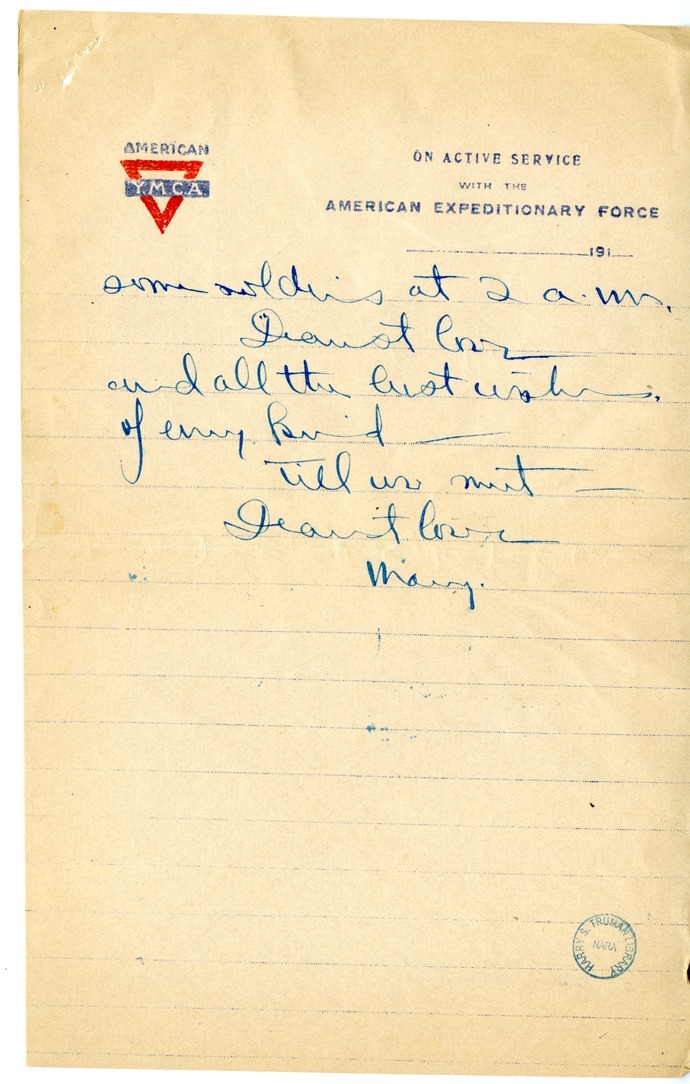 AMERICAN
YMCA
ON ACTIVE SERVICE
WITH THE
AMERICAN EXPEDITIONARY FORCE
191
some soldiers at 2 a.m.
Dearest love
and all the best wishes.
of every kind —
Till we meet —
Dearest love
Mary.
HARRY S. TRUMAN LIBRARY
NARA